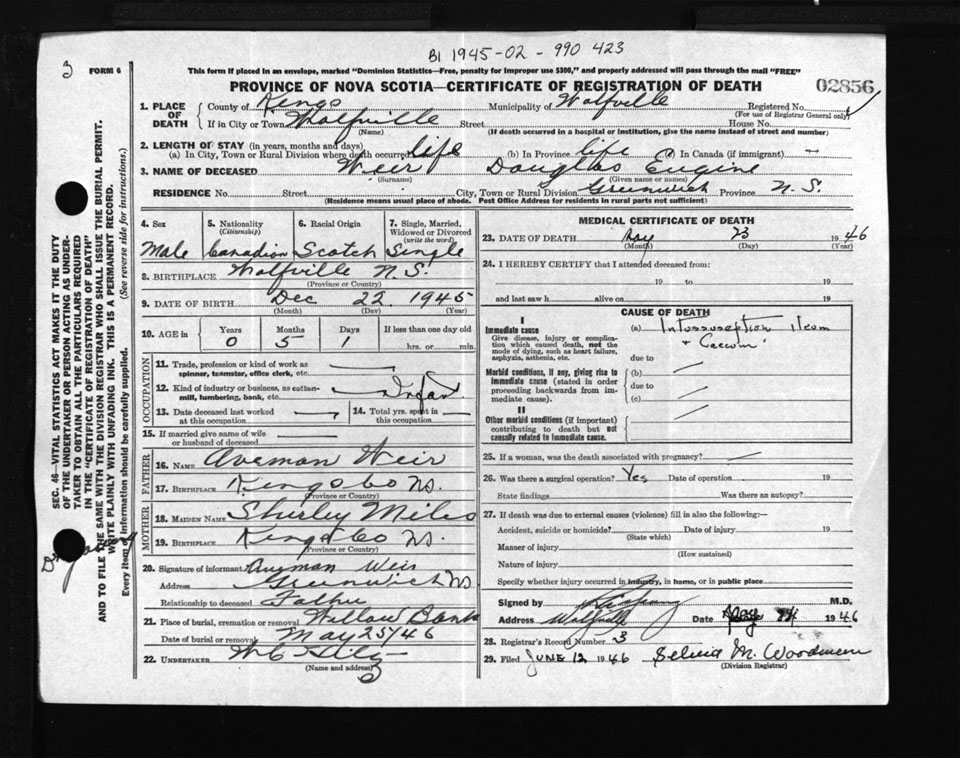 BI 1945-02 - 990 423
3 FORM 6
This form if placed in an envelope, marked "Dominion Statistics—Free, penalty for improper use $300," and properly addressed will pass through the mail "FREE"
PROVINCE OF NOVA SCOTIA—CERTIFICATE OF REGISTRATION OF DEATH 02856
1. PLACE OF DEATH County of Kings Municipality of Wolfville Registered No.
(For use of Registrar General only)
If in City or Town Wolfville Street House No.
(Name) (If death occurred in a hospital or institution, give the name instead of street and number)
2. LENGTH OF STAY (in years, months and days)
(a) In City, Town or Rural Division where death occurred life (b) In Province life (c) In Canada (if immigrant) —
3. NAME OF DECEASED Weir Douglas Eugine
(Surname) (Given name or names)
RESIDENCE No. Street City, Town or Rural Division Greenwich Province N.S.
(Residence means usual place of abode. Post Office Address for residents in rural parts not sufficient)
4. Sex 5. Nationality (Citizenship) 6. Racial Origin 7. Single, Married, Widowed or Divorced (write the word)
Male Canadian Scotch Single
8. BIRTHPLACE Wolfville N.S.
(Province or Country)
9. DATE OF BIRTH Dec 22 1945
(Month) (Day) (Year)
10. AGE in Years Months Days If less than one day old
0 5 1 hrs. or min.
OCCUPATION
11. Trade, profession or kind of work as
spinner, teamster, office clerk, etc.
12. Kind of industry or business, as cotton-
mill, lumbering, bank, etc. Infant
13. Date deceased last worked at this occupation
14. Total yrs. spent in this occupation
15. If married give name of wife or husband of deceased
FATHER
16. NAME Aveman Weir
17. BIRTHPLACE Kings Co NS.
(Province or Country)
MOTHER
18. MAIDEN NAME Shirley Miles
19. BIRTHPLACE Kings Co NS.
(Province or Country)
20. Signature of informant Weir
Address Greenwich NS
Relationship to deceased Father
21. Place of burial, cremation or removal Willow Bank
Date of burial or removal May 25/46
22. UNDERTAKER
(Name and address)
MEDICAL CERTIFICATE OF DEATH
23. DATE OF DEATH May 23 1946
(Month) (Day) (Year)
24. I HEREBY CERTIFY that I attended deceased from:
19 to 19
and last saw h alive on 19
CAUSE OF DEATH
I
Immediate cause
Give disease, injury or complication which caused death, not the mode of dying, such as heart failure, asphyxia, asthenia, etc.
(a) Intussusception Ileum
+ Caecum
due to
Morbid conditions, if any, giving rise to immediate cause (stated in order proceeding backwards from immediate cause).
(b)
due to
(c)
II
Other morbid conditions (if important) contributing to death but not causally related to immediate cause.
25. If a woman, was the death associated with pregnancy?
26. Was there a surgical operation? Yes Date of operation 19
State findings Was there an autopsy?
27. If death was due to external causes (violence) fill in also the following:—
Accident, suicide or homicide? Date of injury 19
(State which)
Manner of injury
(How sustained)
Nature of injury
Specify whether injury occurred in industry, in home, or in public place
Signed by M.D.
Address Wolfville Date May 24 1946
28. Registrar's Record Number 3
29. Filed JUNE 12 1946 Selvia M. Woodman
(Division Registrar)
SEC. 46—VITAL STATISTICS ACT MAKES IT THE DUTY
OF THE UNDERTAKER OR PERSON ACTING AS UNDER-
TAKER TO OBTAIN ALL THE PARTICULARS REQUIRED
IN THE "CERTIFICATE OF REGISTRATION OF DEATH"
AND TO FILE THE SAME WITH THE DIVISION REGISTRAR WHO SHALL ISSUE THE BURIAL PERMIT.
WRITE PLAINLY WITH UNFADING INK. THIS IS A PERMANENT RECORD.
Every item of information should be carefully supplied. (See reverse side for instructions.)